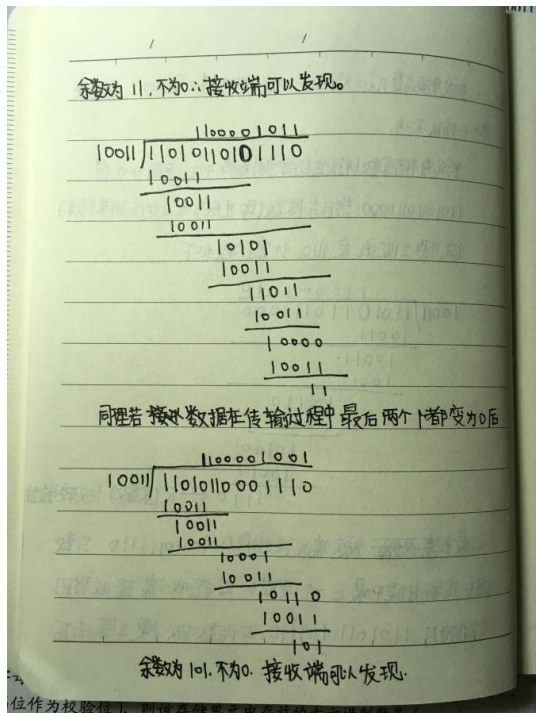 余数为11,不为0∴接收端可以发现。
1100001011
10011 11010110101110
10011
10011
10011
10101
10011
11011
10011
10000
10011
11
同理若数据在传输过程中最后两个1都变为0后
1100001001
10011 11010110001110
10011
10011
10011
10001
10011
10110
10011
101
余数为101.不为0.接收端可以发现.
位作为校验位)